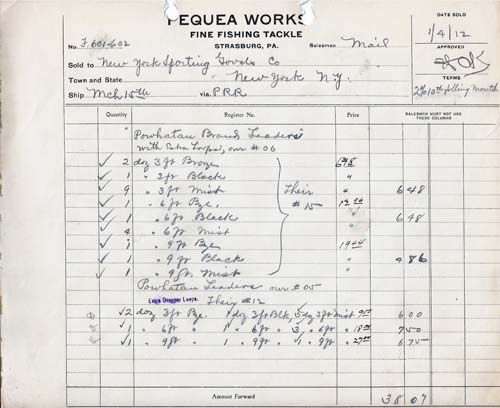 PEQUEA WORKS
FINE FISHING TACKLE
STRASBURG, PA.
DATE SOLD
1/4/12
No. F. 601-602
Salesman Mail
APPROVED
Sold to New York Sporting Goods Co
TERMS
Town and State New York N.Y.
2% 10th folling month
Ship Mch 15th via PRR
Quantity Register No. Price SALESMEN MUST NOT USE THESE COLUMNS
"Powhatan Brand Leaders"
with Extra Loops, our #06
2 doz 3 ft Bronze
1 " 3 ft Black "
9 " 3 ft Mist Their " 6 48
1 " 6 ft Bze. #15
1 " 6 ft Black " 6 48
4 " 6 ft Mist "
1 " 9 ft Bze 19 44
1 " 9 ft Black " 4 86
1 " 9 ft. Mist "
Powhatan Leaders our #05
Extra Dropper Loops. Their #12
2 doz 3 ft Bze. 1 doz 3 ft Blk, 5 doz 3 ft Mist 9.00 6 00
1 " 6 ft " 1 " 6 ft " 3 " 6 ft " 18.00 7 50
1 " 9 ft " 1 " 9 ft " 1 " 9 ft " 27.00 6 75
Account Forward 38 07